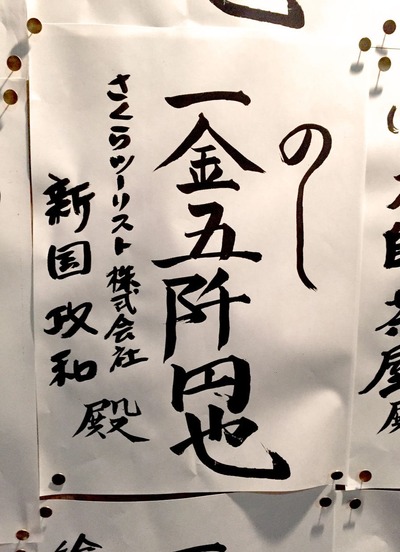 のし
一金五阡円也
さくらツーリスト株式会社
新国政和殿
茶屋殿